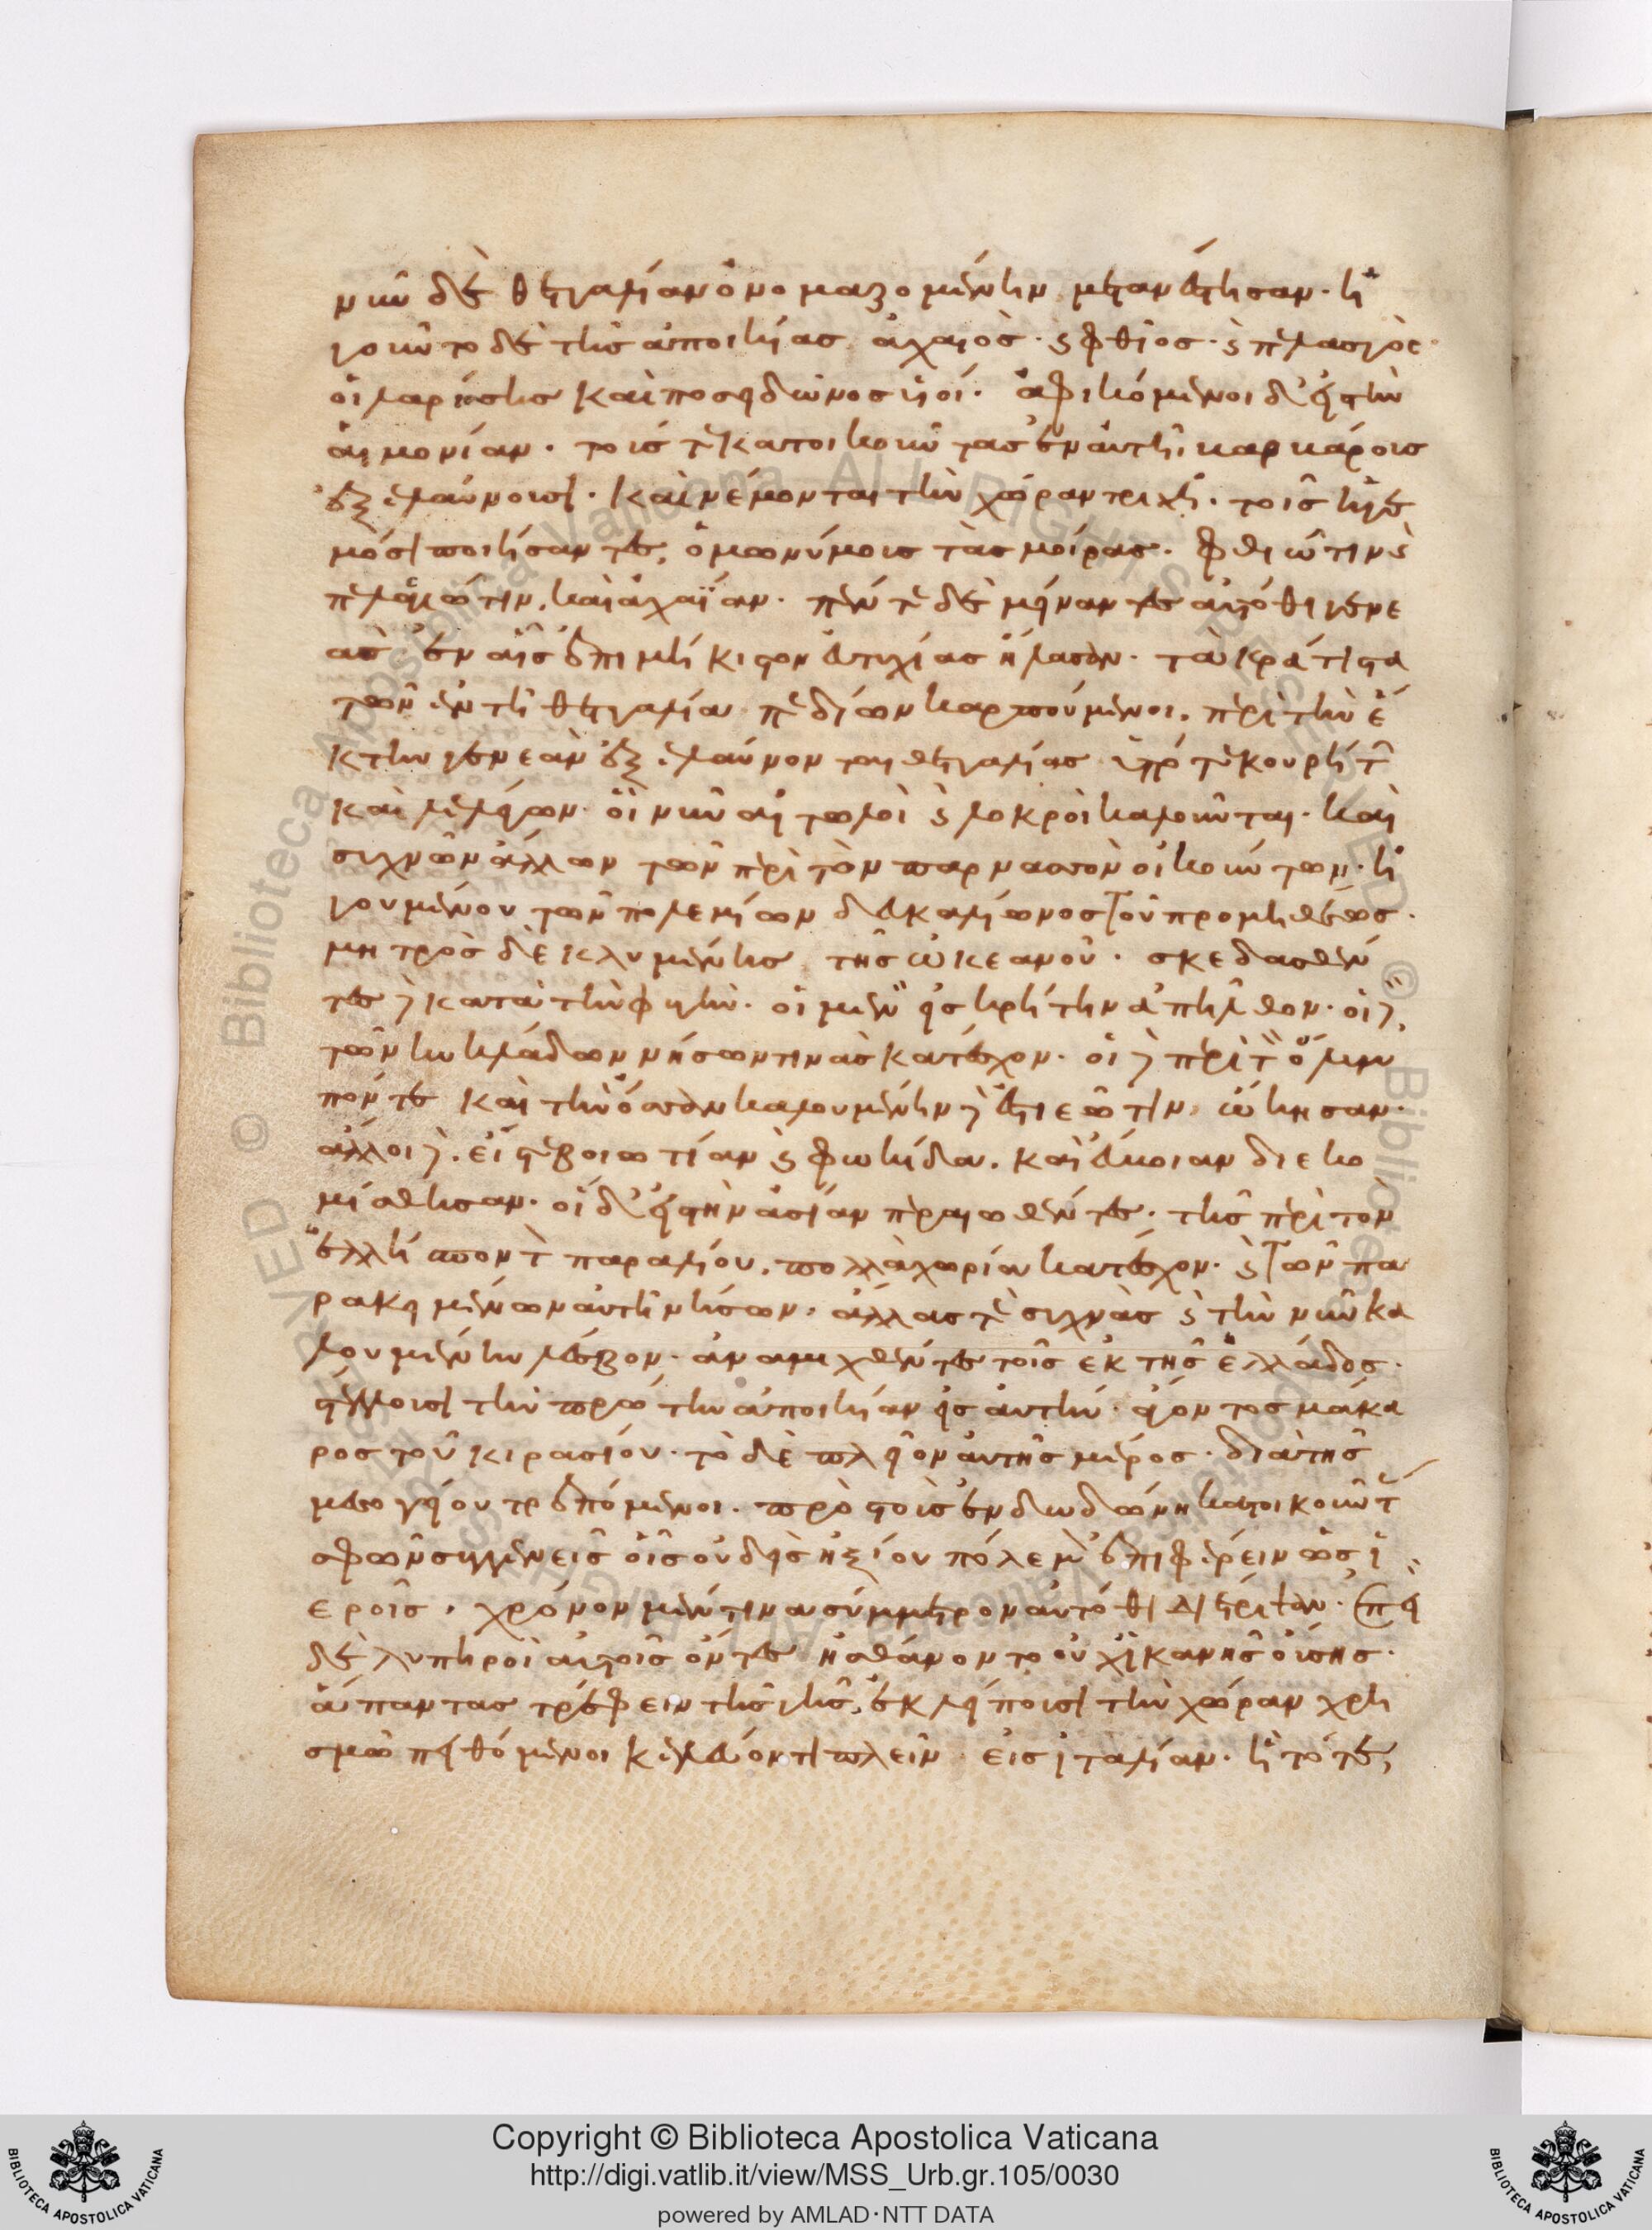 νῦν δὲ θετταλίαν ὀνομαζομένην μετανέστησαν· ἡ
γοῦντο δὲ τῆς ἀποικίας ἀχαιὸς· καὶ φθῖος· καὶ πελασγὸς·
οἱ λαρίσσης καὶ ποσειδῶνος υἱοί· ἀφικόμενοι δ' εἰς τὴν
αἱμονίαν· τούς τε κατοικοῦντας ἐν αὐτῇ βαρβάρους
ἐξελαύνουσι· καὶ νέμονται τὴν χώραν τριχῇ· τοῖς ἡγε
μόσι ποιήσαντες, ὁμωνύμους τὰς μοίρας· φθιῶτιν καὶ
πελασγιῶτιν, καὶ ἀχαΐαν· πέντε δὲ μείναντες αὐτόθι γενε
ὰς ἐν αἷς ἐπὶ μήκιστον εὐτυχίας ἤλασαν· τὰ κράτιστα
τῶν ἐν τῇ θετταλίᾳ πεδίων καρπούμενοι, περὶ τὴν ἕ
κτην γενεὰν ἐξελαύνονται θετταλίας ὑπό τε κουρήτων
καὶ λελέγων· οἳ νῦν αἰτωλοὶ καὶ λοκροὶ καλοῦνται· καὶ
συχνῶν ἄλλων τῶν περὶ τὸν παρνασσὸν οἰκούντων· ἡ
γουμένου τῶν πολεμίων δευκαλίωνος τοῦ προμηθέως·
μητρὸς δὲ κλυμένης τῆς ὠκεανοῦ· σκεδασθέν
τες δὲ κατὰ τὴν φυγὴν· οἱ μὲν εἰς κρήτην ἀπῆλθον· οἱ δὲ,
τῶν κυκλάδων νήσων τινὰς κατέσχον· οἱ δὲ περὶ τὸν ὄλυμ
πόν τε καὶ τὴν ὄσσαν καλουμένην δὲ ἑστιεῶτιν, ᾤκησαν·
ἄλλοι δὲ, εἴς τε βοιωτίαν καὶ φωκίδα, καὶ εὔβοιαν διεκο
μίσθησαν· οἱ δ' εἰς τὴν ἀσίαν περαιωθέντες· τῆς περὶ τὸν
ἑλλήσποντον παραλίου, πολλὰ χωρία κατέσχον· καὶ τῶν πα
ρακειμένων αὐτῇ νήσων· ἄλλας τε συχνὰς καὶ τὴν νῦν κα
λουμένην λέσβον· ἀναμιχθέντες τοῖς ἐκ τῆς ἑλλάδος·
στέλλουσι τὴν πρώτην ἀποικίαν εἰς αὐτήν· ἄγοντος μάκα
ρος τοῦ κιρασίου· τὸ δὲ πλεῖον αὐτῆς μέρος· διὰ τῆς
μεσογείου τραπόμενοι· πρὸς τοὺς ἐν δωδώνῃ κατοικοῦντας
σφῶν συγγενεῖς οἷς οὐδεὶς ἠξίου πόλεμον ἐπιφέρειν ὡς ἱ
εροῖς· χρόνον μέν τινα σύμμετρον αὐτόθι διέτριψαν· ἐπεὶ
δὲ λυπηροὶ αὐτοῖς ὄντες ᾐσθάνοντο οὐχ ἱκανῆς οὔσης·
ἅπαντας τρέφειν τῆς γῆς, ἐκλείπουσι τὴν χώραν χρη
σμῷ πειθόμενοι κελεύοντι πλεῖν εἰς ἰταλίαν· ἣ τότε,
Copyright © Biblioteca Apostolica Vaticana
http://digi.vatlib.it/view/MSS_Urb.gr.105/0030
powered by AMLAD·NTT DATA